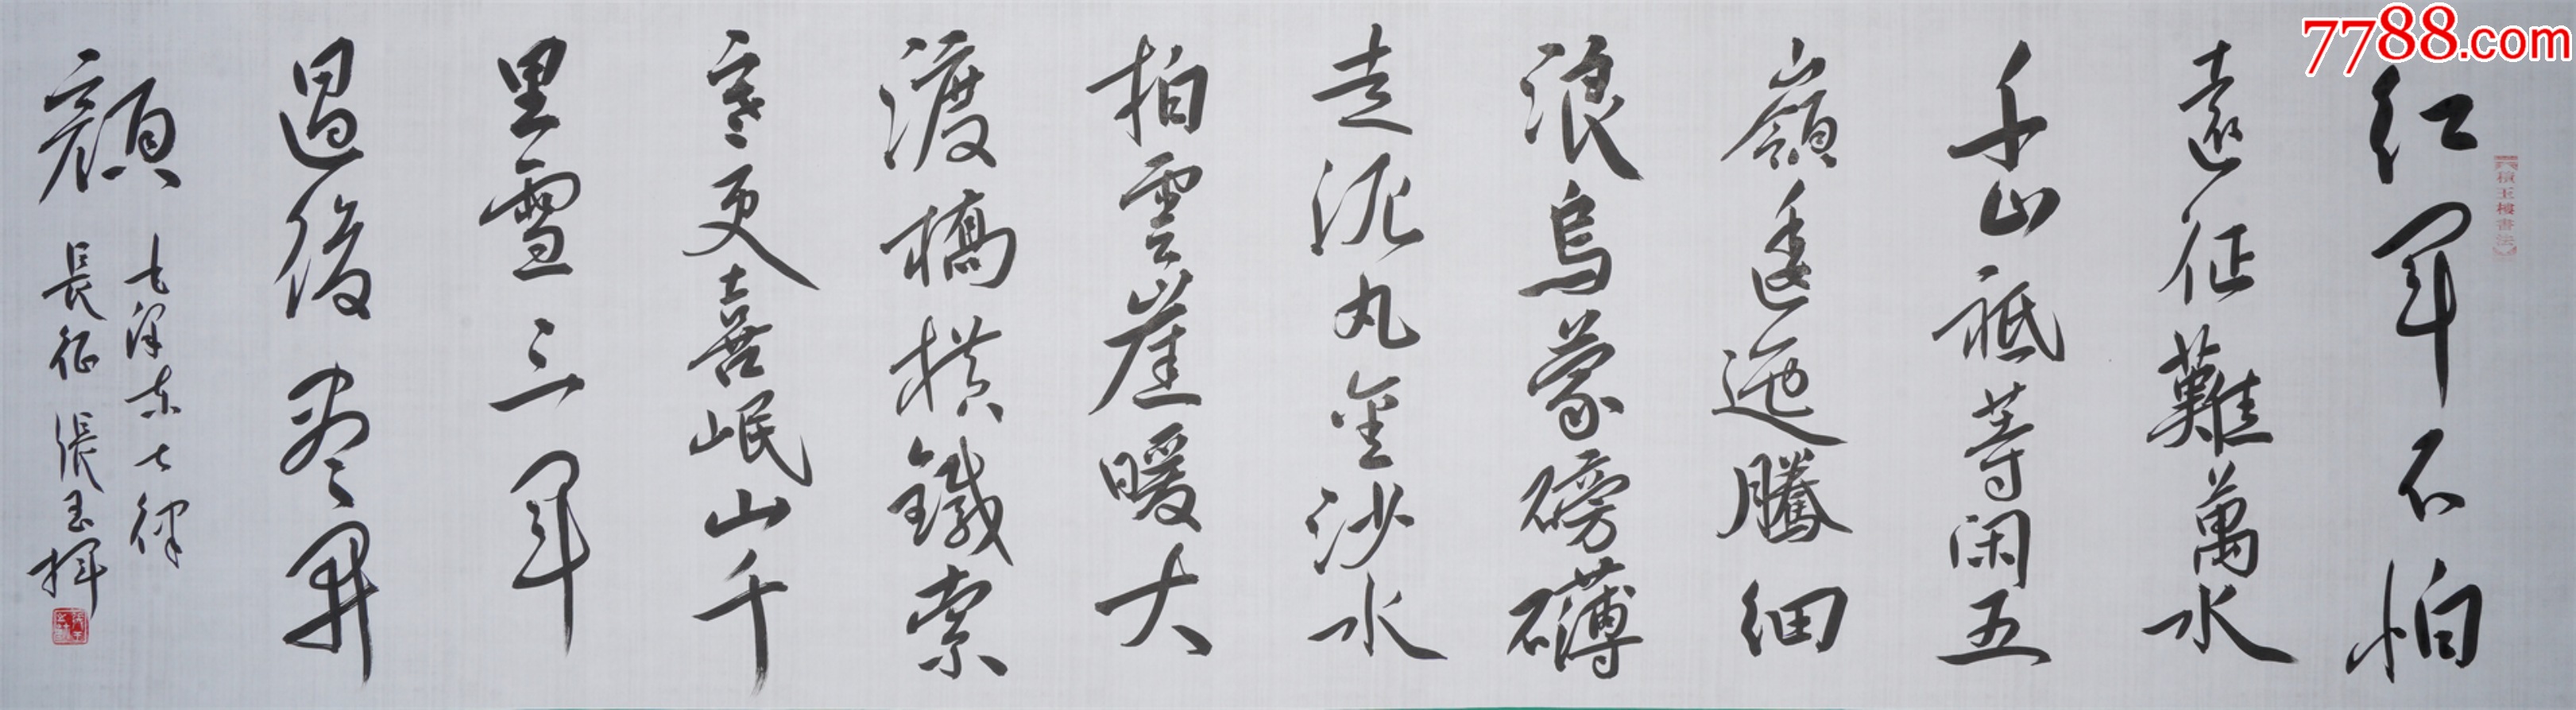 7788.com
【積玉樓書法】
红軍不怕
遠征難萬水
千山祗等闲五
嶺逶迤騰细
浪烏蒙磅礴
走泥丸金沙水
拍雲崖暖大
渡橋横鐵索
寒更喜岷山千
里雪三軍
過後盡開
顔
毛泽东七律
長征 張玉輝